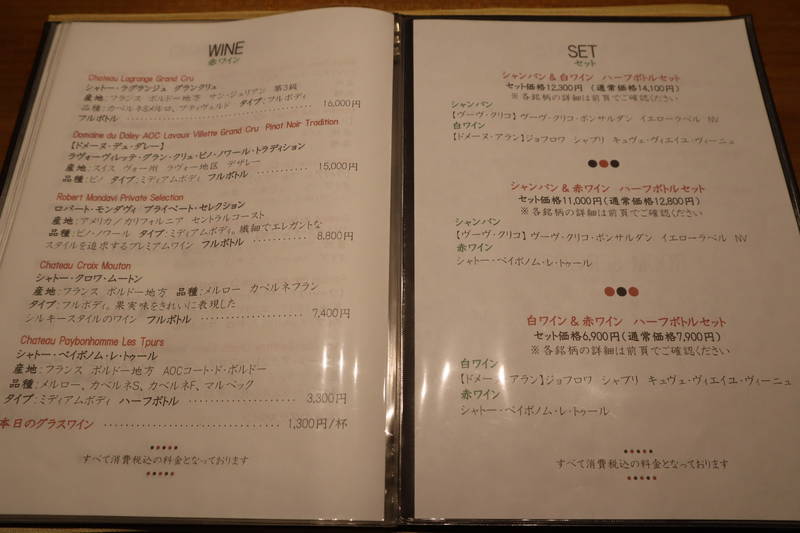 WINE
赤ワイン
Chateau Lagrange Grand Cru
シャトー・ラグランジュ グランクリュ 第3級
産地:フランス ボルドー地方 サン・ジュリアン
品種:カベルネS、メルロ、プティヴェルド タイプ:フルボディ
フルボトル ………………………… 16,000円
Domaine du Daley AOC Lavaux Villette Grand Cru Pinot Noir Tradition
【ドメーヌ・デュ・ダレー】
ラヴォーヴィレッテ・グラン・クリュ・ピノ・ノワール・トラディション
産地:スイス ヴォー州 ラヴォー地区 デザレー
品種:ピノ タイプ:ミディアムボディ フルボトル ………… 15,000円
Robert Mondavi Private Selection
ロバート・モンダヴィ プライベート・セレクション
産地:アメリカ/カリフォルニア セントラルコースト
品種:ピノ・ノワール タイプ:ミディアムボディ。繊細でエレガントな
スタイルを追求するプレミアムワイン フルボトル ………… 8,800円
Chateau Croix Mouton
シャトー・クロワ・ムートン
産地:フランス ボルドー地方 品種:メルロー カベルネフラン
タイプ:フルボディ。果実味をきれいに表現した
シルキースタイルのワイン フルボトル ………………… 7,400円
Chateau Paybonhomme Les Tpurs
シャトー・ペイボノム・レ・トゥール
産地:フランス ボルドー地方 AOCコート・ド・ボルドー
品種:メルロー、カベルネS、カベルネF、マルベック
タイプ:ミディアムボディ ハーフボトル ………………… 3,300円
本日のグラスワイン ………………………… 1,300円/杯
すべて消費税込の料金となっております
SET
セット
シャンパン&白ワイン ハーフボトルセット
セット価格12,300円 (通常価格14,100円)
※各銘柄の詳細は前頁でご確認ください
シャンパン
【ヴーヴ・クリコ】 ヴーヴ・クリコ・ポンサルダン イエローラベル NV
白ワイン
【ドメーヌ・アラン】ジョフロワ シャブリ キュヴェ・ヴィエイユ・ヴィーニュ
シャンパン&赤ワイン ハーフボトルセット
セット価格11,000円(通常価格12,800円)
※各銘柄の詳細は前頁でご確認ください
シャンパン
【ヴーヴ・クリコ】 ヴーヴ・クリコ・ポンサルダン イエローラベル NV
赤ワイン
シャトー・ペイボノム・レ・トゥール
白ワイン&赤ワイン ハーフボトルセット
セット価格6,900円(通常価格7,900円)
※各銘柄の詳細は前頁でご確認ください
白ワイン
【ドメーヌ・アラン】ジョフロワ シャブリ キュヴェ・ヴィエイユ・ヴィーニュ
赤ワイン
シャトー・ペイボノム・レ・トゥール
すべて消費税込の料金となっております